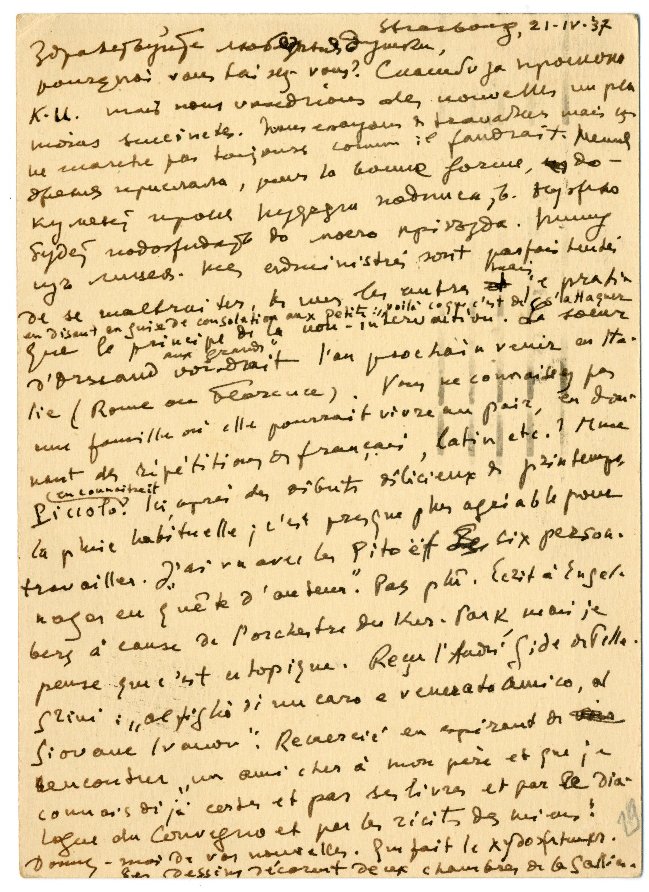 Strasbourg, 21-IV-37
Здравствуйте
pourquoi vous taisez-vous?
mais nous voudrions des nouvelles un peu
moins succinctes. Nous essayons de travailler mais ça
ne marche pas toujours comme il faudrait.
pour la bonne forme, до-
кумент
будет до моего приезда. Пишу
из лицея. Mes administrés sont parfaitement
de se maltraiter, les uns les autres mais je
en disant en guise de consolation aux petits: "voilà ce que c'est de s'attaquer
aux grands"
que le principe de la non-intervention. La soeur
d'Orsraud voudrait l'an prochain venir en Ita-
lie (Rome ou Florence). Vous ne connaissez pas
une famille où elle pourrait vivre au pair, en don-
nant des répétitions de français, latin etc.? Mme
Piccolo en connaitrait? Ici après des débuts délicieux de printemps
la pluie habituelle; c'est presque plus agréable pour
travailler. J'ai vu avec les Pitoëff les six person-
nages en quête d'auteur". Pas plû. Ecrit à Engel-
berg à cause de l'orchestre du Kur-Park mais je
pense que c'est utopique. Reçu l'André Gide de Pelle-
grini: "al figlio di un caro e venerato amico, al
giovane Ivanov". Remercié en espérant de
rencontrer "un ami cher à mon père et que je
connais déjà certes et par ses livres et par le Dia-
logue du Convegno et par les récits des miens".
Donnez-moi de vos nouvelles. Que fait le художник.
Ses dessins décorent deux chambres de la Gallia.